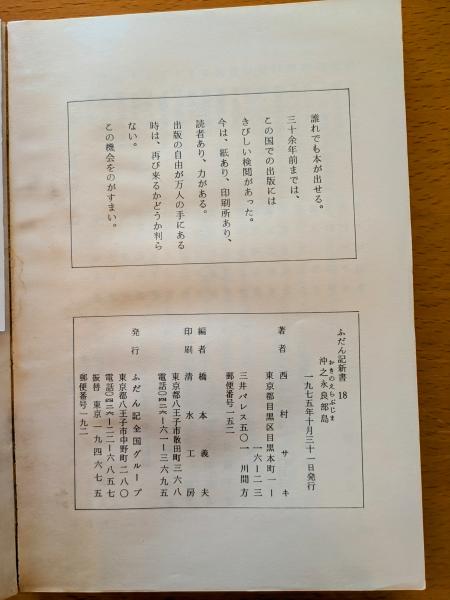 誰れでも本が出せる。
三十余年前までは、
この国での出版には
きびしい検閲があった。
今は、紙あり、印刷所あり、
読者あり、力がある。
出版の自由が万人の手にある
時は、再び来るかどうか判ら
ない。
この機会をのがすまい。
ふだん記新書 18
おきのえらぶじま
沖之永良部島
一九七五年十月三十一日発行
著者 西村サキ
東京都目黒区目黒本町一ー
一六ー二三
三井パレス五〇一 川間方
郵便番号一五二
編者 橋本義夫
印刷 清水工房
東京都八王子市散田町三六八
電話〇四二六ー六一ー三六九五
発行 ふだん記全国グループ
東京都八王子市中野町二八〇
電話〇四二六ー二二ー六八五七
振替 東京 一九四六七五
郵便番号一九二